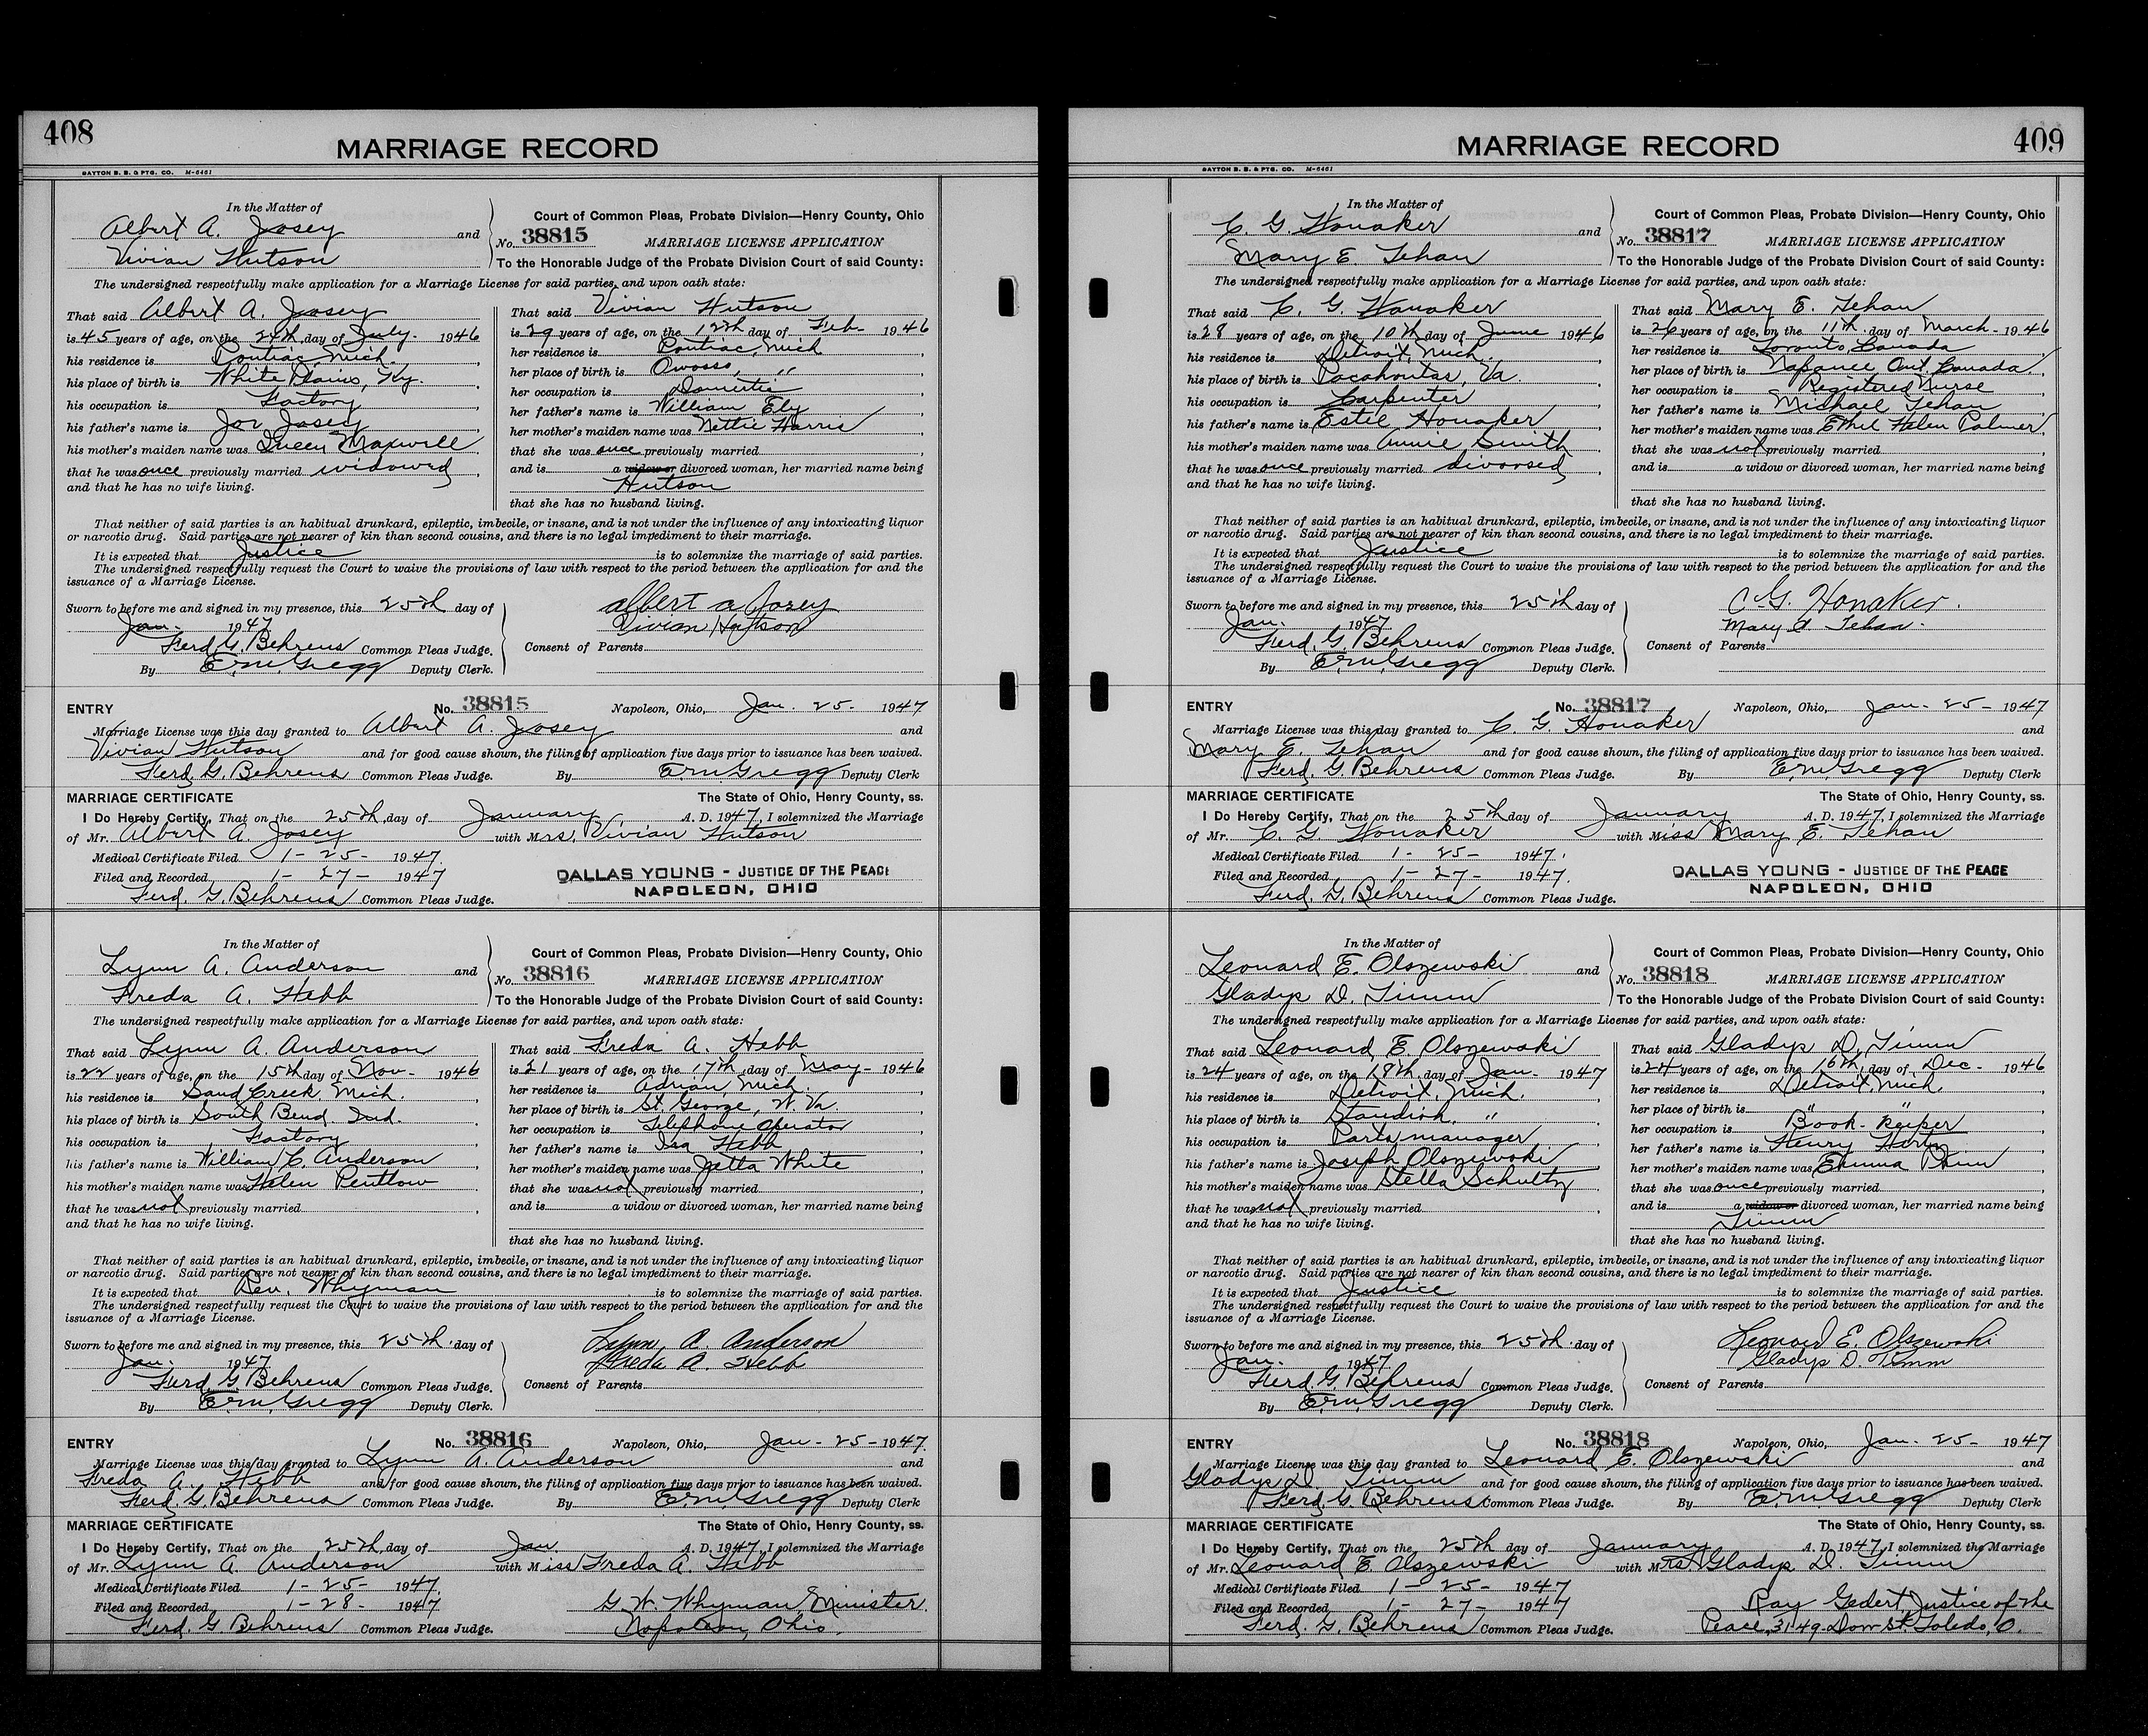 408
MARRIAGE RECORD
DAYTON B. B. & PTG. CO. M-6461
In the Matter of
Albert A. Josey and
Vivian Hutson
Court of Common Pleas, Probate Division—Henry County, Ohio
No. 38815 MARRIAGE LICENSE APPLICATION
To the Honorable Judge of the Probate Division Court of said County:
The undersigned respectfully make application for a Marriage License for said parties, and upon oath state:
That said Albert A. Josey
is 45 years of age, on the 24th day of July- 1946
his residence is Pontiac, Mich.
his place of birth is White Plains, Ky.
his occupation is Factory
his father's name is Joe Josey
his mother's maiden name was Queen Maxwell
that he was once previously married widowed
and that he has no wife living.
That said Vivian Hutson
is 29 years of age, on the 12th day of Feb- 1946
her residence is Pontiac, Mich
her place of birth is Owosso, "
her occupation is Domestic
her father's name is William Ely
her mother's maiden name was Nettie Harris
that she was once previously married
and is a widow or divorced woman, her married name being
Hutson
that she has no husband living.
That neither of said parties is an habitual drunkard, epileptic, imbecile, or insane, and is not under the influence of any intoxicating liquor
or narcotic drug. Said parties are not nearer of kin than second cousins, and there is no legal impediment to their marriage.
It is expected that Justice is to solemnize the marriage of said parties.
The undersigned respectfully request the Court to waive the provisions of law with respect to the period between the application for and the
issuance of a Marriage License.
Sworn to before me and signed in my presence, this 25th day of
Jan. 1947
Ferd. G. Behrens Common Pleas Judge.
By E.M. Gregg Deputy Clerk.
albert a Josey
Vivian Hutson
Consent of Parents
ENTRY No. 38815 Napoleon, Ohio, Jan. 25- 1947
Marriage License was this day granted to Albert A. Josey and
Vivian Hutson and for good cause shown, the filing of application five days prior to issuance has been waived.
Ferd. G. Behrens Common Pleas Judge. By E.M. Gregg Deputy Clerk
MARRIAGE CERTIFICATE The State of Ohio, Henry County, ss.
I Do Hereby Certify, That on the 25th day of January A. D. 1947, I solemnized the Marriage
of Mr. Albert A. Josey with Mrs. Vivian Hutson
Medical Certificate Filed 1-25- 1947.
Filed and Recorded 1-27- 1947
Ferd. G. Behrens Common Pleas Judge.
DALLAS YOUNG - JUSTICE OF THE PEACE
NAPOLEON, OHIO
In the Matter of
Lynn A. Anderson and
Freda A. Hebb
Court of Common Pleas, Probate Division—Henry County, Ohio
No. 38816 MARRIAGE LICENSE APPLICATION
To the Honorable Judge of the Probate Division Court of said County:
The undersigned respectfully make application for a Marriage License for said parties, and upon oath state:
That said Lynn A. Anderson
is 22 years of age, on the 15th day of Nov- 1946
his residence is Sand Creek Mich.
his place of birth is South Bend, Ind.
his occupation is Factory
his father's name is William C. Anderson
his mother's maiden name was Helen Pentlow
that he was not previously married
and that he has no wife living.
That said Freda A. Hebb
is 21 years of age, on the 17th day of May- 1946
her residence is Adrian, Mich.
her place of birth is St. George, W. Va.
her occupation is Telephone Operator
her father's name is Isa Hebb
her mother's maiden name was Jetta White
that she was not previously married
and is a widow or divorced woman, her married name being
that she has no husband living.
That neither of said parties is an habitual drunkard, epileptic, imbecile, or insane, and is not under the influence of any intoxicating liquor
or narcotic drug. Said parties are not nearer of kin than second cousins, and there is no legal impediment to their marriage.
It is expected that Rev. Whyman is to solemnize the marriage of said parties.
The undersigned respectfully request the Court to waive the provisions of law with respect to the period between the application for and the
issuance of a Marriage License.
Sworn to before me and signed in my presence, this 25th day of
Jan. 1947
Ferd. G. Behrens Common Pleas Judge.
By E.M. Gregg Deputy Clerk.
Lynn A. Anderson
Freda A. Hebb
Consent of Parents
ENTRY No. 38816 Napoleon, Ohio, Jan- 25- 1947.
Marriage License was this day granted to Lynn A. Anderson and
Freda A. Hebb and for good cause shown, the filing of application five days prior to issuance has been waived.
Ferd. G. Behrens Common Pleas Judge. By E.M. Gregg Deputy Clerk
MARRIAGE CERTIFICATE The State of Ohio, Henry County, ss.
I Do Hereby Certify, That on the 25th day of Jan A. D. 1947, I solemnized the Marriage
of Mr. Lynn A. Anderson with Miss Freda A. Hebb
Medical Certificate Filed 1-25- 1947.
Filed and Recorded 1-28- 1947
Ferd. G Behrens Common Pleas Judge.
G. W. Whyman Minister.
Napoleon, Ohio.
409
MARRIAGE RECORD
DAYTON B. B. & PTG. CO. M-6461
In the Matter of
C. G. Honaker and
Mary E. Tehan
Court of Common Pleas, Probate Division—Henry County, Ohio
No. 38817 MARRIAGE LICENSE APPLICATION
To the Honorable Judge of the Probate Division Court of said County:
The undersigned respectfully make application for a Marriage License for said parties, and upon oath state:
That said C. G. Honaker
is 28 years of age, on the 10th day of June 1946
his residence is Detroit, Mich.
his place of birth is Pocahontas, Va.
his occupation is Carpenter
his father's name is Estil Honaker
his mother's maiden name was Annie Smith
that he was once previously married divorsed
and that he has no wife living.
That said Mary E. Tehan
is 26 years of age, on the 11th day of March- 1946
her residence is Toronto, Canada
her place of birth is Napanee Ont Canada
her occupation is Registered Nurse
her father's name is Michael Tehan
her mother's maiden name was Ethel Helen Palmer
that she was not previously married
and is a widow or divorced woman, her married name being
that she has no husband living.
That neither of said parties is an habitual drunkard, epileptic, imbecile, or insane, and is not under the influence of any intoxicating liquor
or narcotic drug. Said parties are not nearer of kin than second cousins, and there is no legal impediment to their marriage.
It is expected that Justice is to solemnize the marriage of said parties.
The undersigned respectfully request the Court to waive the provisions of law with respect to the period between the application for and the
issuance of a Marriage License.
Sworn to before me and signed in my presence, this 25th day of
Jan. 1947
Ferd. G. Behrens Common Pleas Judge.
By E.M. Gregg Deputy Clerk.
C. G. Honaker.
Mary E. Tehan.
Consent of Parents
ENTRY No. 38817 Napoleon, Ohio, Jan- 25- 1947
Marriage License was this day granted to C. G. Honaker and
Mary E. Tehan and for good cause shown, the filing of application five days prior to issuance has been waived.
Ferd. G. Behrens Common Pleas Judge. By E.M. Gregg Deputy Clerk
MARRIAGE CERTIFICATE The State of Ohio, Henry County, ss.
I Do Hereby Certify, That on the 25th day of January A. D. 1947, I solemnized the Marriage
of Mr. C. G. Honaker with Miss Mary E. Tehan
Medical Certificate Filed 1-25- 1947.
Filed and Recorded 1-27- 1947.
Ferd. G. Behrens Common Pleas Judge.
DALLAS YOUNG - JUSTICE OF THE PEACE
NAPOLEON, OHIO
In the Matter of
Leonard E. Olszewski and
Gladys D. Timm
Court of Common Pleas, Probate Division—Henry County, Ohio
No. 38818 MARRIAGE LICENSE APPLICATION
To the Honorable Judge of the Probate Division Court of said County:
The undersigned respectfully make application for a Marriage License for said parties, and upon oath state:
That said Leonard E. Olszewski
is 24 years of age, on the 18th day of Jan- 1947
his residence is Detroit, Mich.
his place of birth is Standish, "
his occupation is Parts manager
his father's name is Joseph Olszewski
his mother's maiden name was Stella Schultz
that he was not previously married
and that he has no wife living.
That said Gladys D. Timm
is 24 years of age, on the 16th day of Dec- 1946
her residence is Detroit, Mich
her place of birth is " "
her occupation is Book-keeper
her father's name is Henry
her mother's maiden name was Emma
that she was once previously married
and is a widow or divorced woman, her married name being
Timm
that she has no husband living.
That neither of said parties is an habitual drunkard, epileptic, imbecile, or insane, and is not under the influence of any intoxicating liquor
or narcotic drug. Said parties are not nearer of kin than second cousins, and there is no legal impediment to their marriage.
It is expected that Justice is to solemnize the marriage of said parties.
The undersigned respectfully request the Court to waive the provisions of law with respect to the period between the application for and the
issuance of a Marriage License.
Sworn to before me and signed in my presence, this 25th day of
Jan. 1947
Ferd. G. Behrens Common Pleas Judge.
By E.M. Gregg Deputy Clerk.
Leonard E. Olszewski
Gladys D. Timm
Consent of Parents
ENTRY No. 38818 Napoleon, Ohio, Jan- 25- 1947
Marriage License was this day granted to Leonard E. Olszewski and
Gladys D. Timm and for good cause shown, the filing of application five days prior to issuance has been waived.
Ferd. G. Behrens Common Pleas Judge. By E.M. Gregg Deputy Clerk
MARRIAGE CERTIFICATE The State of Ohio, Henry County, ss.
I Do Hereby Certify, That on the 25th day of January A. D. 1947, I solemnized the Marriage
of Mr. Leonard E. Olszewski with Mrs. Gladys D. Timm
Medical Certificate Filed 1-25- 1947
Filed and Recorded 1-27- 1947
Ferd. G. Behrens Common Pleas Judge.
Ray Gedert Justice of the
Peace, 3149 Dorr St. Toledo, O.